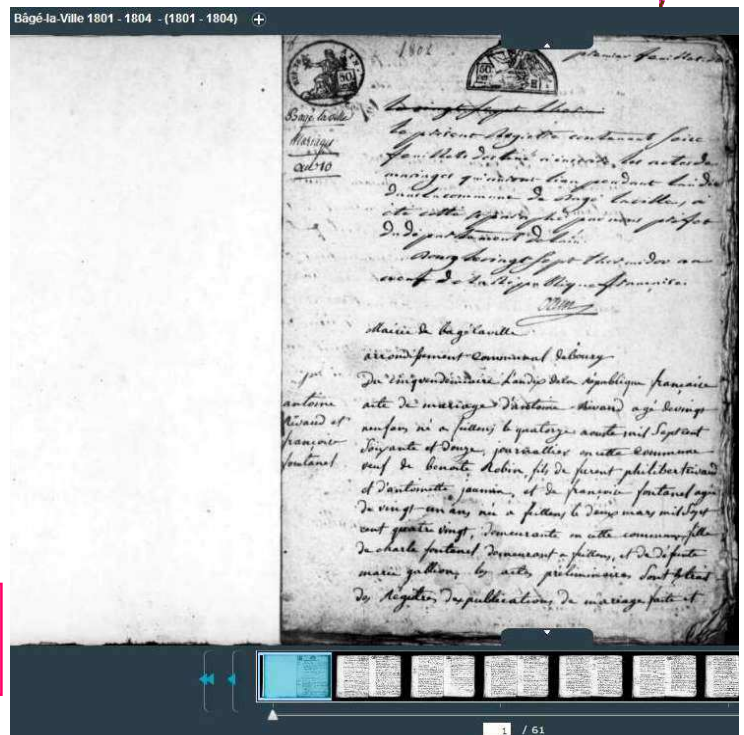 Bâgé-la-Ville 1801 - 1804 - (1801 - 1804)
1802
premier feuillet
Bagé-la-ville
Mariages
an 10
Le présent Registre contenant seize
feuillets destiné à inscrire les actes de
mariages qui auront lieu pendant l'an dix
dans la commune de Bagé laville, a
été cotté et paraphé par nous préfet
du département de l'ain.
Bourg le vingt sept thermidor an
neuf de la République française.
Mairie de bagélaville
arrondissement communal de bourg
Du cinq vendémiaire L'an dix de la république française
acte de mariage d'antoine Rivaud agé de vingt
neuf ans né a feillens le quatorze aoust mil Sept cent
Soixante et douze, journallier en cette commune
veuf de benoite Robin, fils de furent philibert Rivaud
et d'antoinette jaunin, et de francoise fontanel agée
de vingt un ans, née a feillens le deux mars mil Sept
cent quatre vingt, demeurante en cette commune, fille
de charle fontanel demeurant a feillens, et de défunte
marie gallion, les actes préliminaires Sont Extrait
des Registres des publications de mariage faite et
antoine
Rivaud et
francoise
fontanel
1 / 61